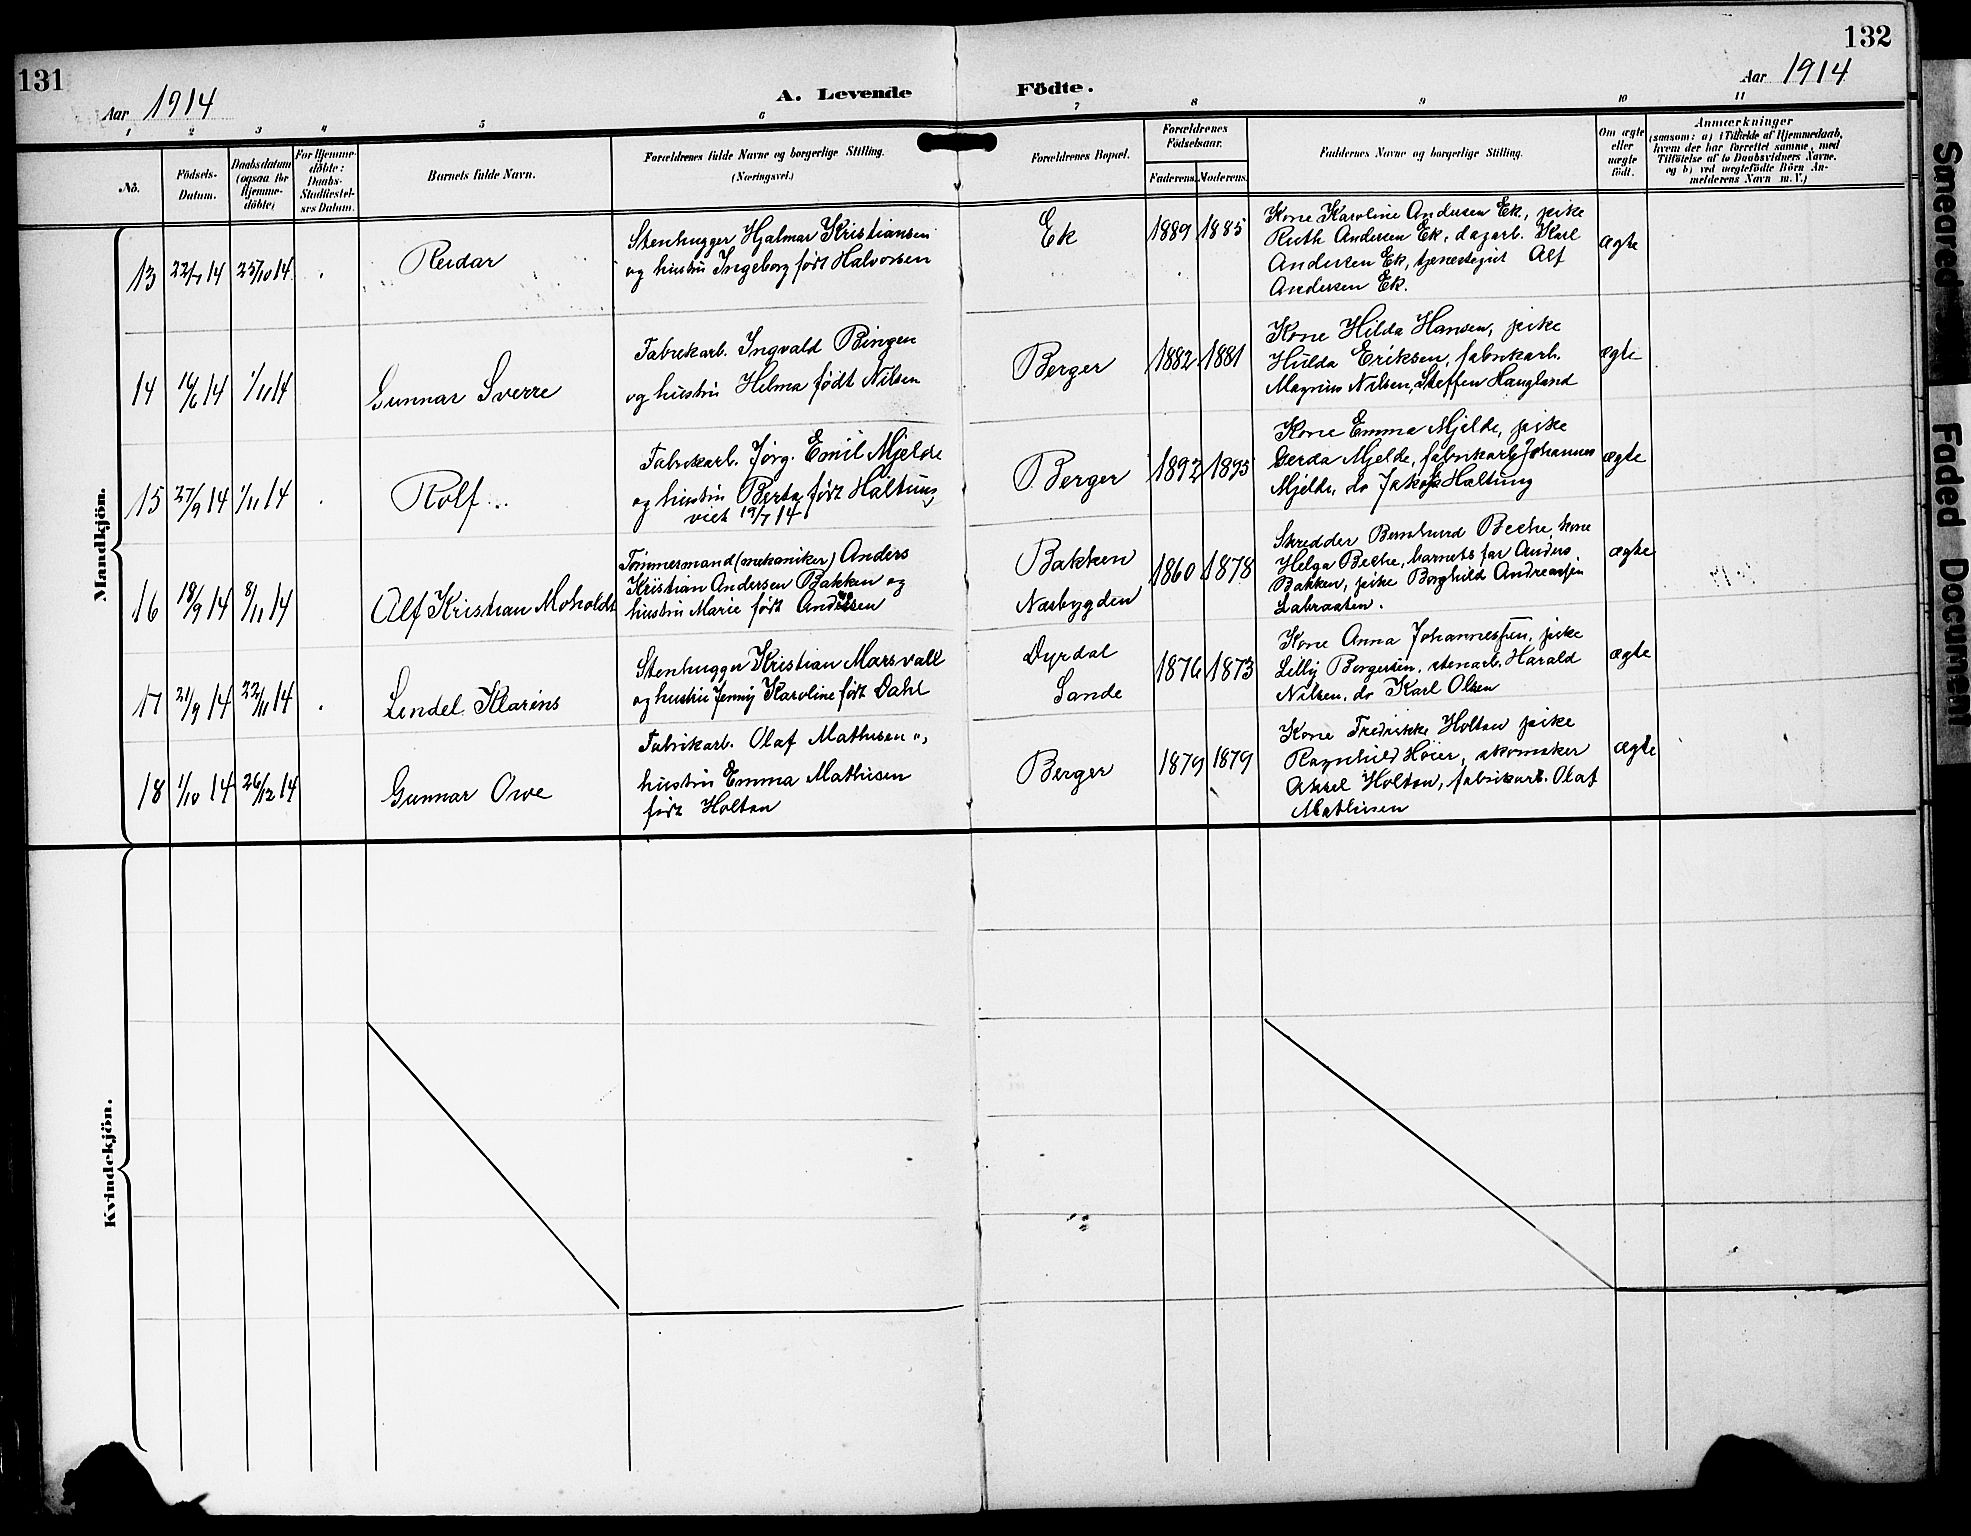 131
132
Aar 1914
A. Levende Födte.
Aar 1914
1 2 3 4 5 6 7 8 9 10 11
No.
Födsels-
Datum.
Daabsdatum
(ogsaa for
Hjemme-
döbte)
For Hjemme-
döbte:
Daabs-
Stadfæstel-
ses Datum.
Barnets fulde Navn.
Forældrenes fulde Navne og borgerlige Stilling.
(Næringsvei.)
Forældrenes Bopæl.
Forældrenes
Födselsaar.
Faderens. Moderens.
Faddernes Navne og borgerlige Stilling.
Om ægte
eller
uægte
født.
Anmærkninger
(saasom: a) i Tilfælde af Hjemmedaab,
hvem der har forrettet samme, med
Tilføielse af to Daabsvidners Navne.
og b) ved uægtefødte Börn An-
melderens Navn m. V.)
Mandkjön.
13 22/7 14 25/10 14 Reidar
Stenhugger Hjalmar Kristiansen
og hustru Ingeborg født Halvorsen
Ek 1889 1885
Kone Karoline Andersen Ek, pike
Ruth Andersen Ek, dagarb. Karl
Andersen Ek, tjenestegut Alf
Andersen Ek.
ægte
14 16/6 14 1/11 14 Gunnar Sverre
Fabrikarb. Ingvald Bingen
og hustru Helma født Nilsen
Berger 1882 1881
Kone Hilda Hansen, pike
Hulda Eriksen, fabrikarb.
Magnus Nilsen, Steffen Haugland
ægte
15 27/9 14 1/11 14 Rolf
Fabrikarb. Jørg. Emil Mjelde
og hustru Berta født Haltung
viet 19/7 14
Berger 1892 1895
Kone Emma Mjelde, pike
Gerda Mjelde, fabrikarb. Johannes
Mjelde, do Jakob Haltung
ægte
16 18/9 14 8/11 14 Alf Kristian Moholdt
Tømmermand (mekaniker) Anders
Kristian Andersen Bakken og
hustru Marie født Andersen
Bakken
Næsbygden
1860 1878
Skredder Bernhard Beche, kone
Helga Beche, barnets far Anders
Bakken, pike Borghild Andreassen
Labraaten.
ægte
17 21/9 14 22/11 14 Lendel Klarens
Stenhugger Kristian Marsvall
og hustru Jenny Karoline født Dahl
Dyrdal
Sande
1876 1873
Kone Anna Johannessen, pike
Lilly Borgersen, stenarb. Harald
Nilsen, do Karl Olsen
ægte
18 1/10 14 26/12 14 Gunnar Owe
Fabrikarb. Olaf Mathisen
hustru Emma Mathisen
født Holtan
Berger 1879 1879
Kone Fredrikke Holtan pike
Ragnhild Høier, skomaker
Aksel Holtan, fabrikarb. Olaf
Mathisen
ægte
Kvindekjön.
Smeared
Faded Document